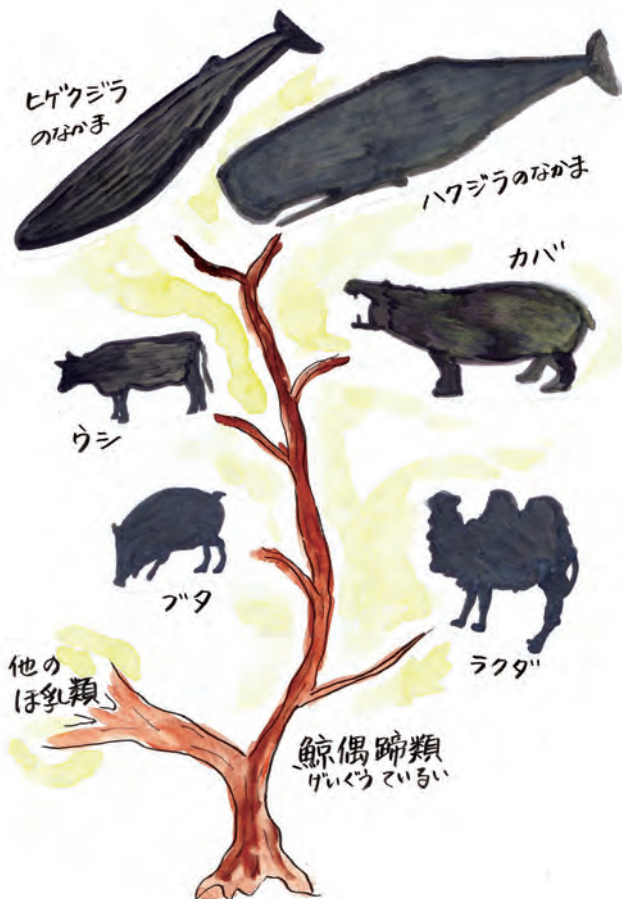 ヒゲクジラ
のなかま
ハクジラのなかま
カバ
ウシ
ブタ
ラクダ
他の
ほ乳類
鯨偶蹄類
げいぐうているい